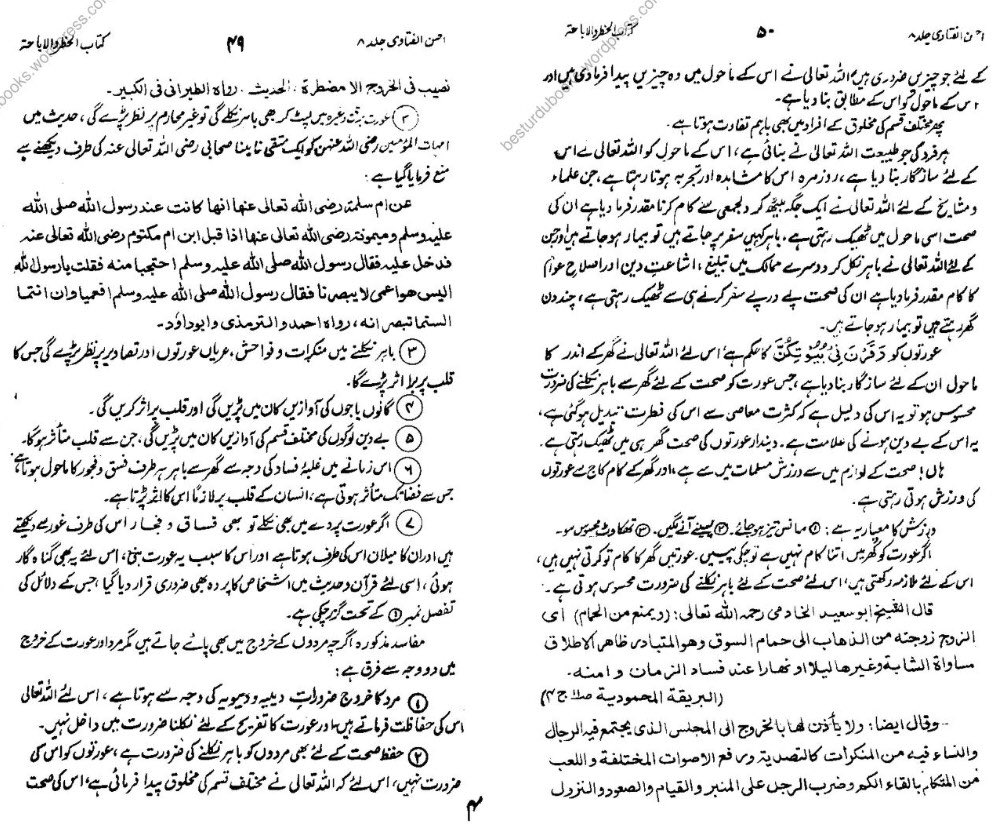 احسن الفتاوی جلد ۸ ۴۹ کتاب الحظر والاباحة
نصیب فی الخروج الا مضطرة، الحدیث. رواه الطبرانی فی الکبیر۔
② عورت برقع وغیرہ میں لپٹ کر بھی باہر نکلے گی تو غیر محارم پر نظر پڑے گی، حدیث میں
امہات المؤمنین رضی اللہ عنہن کو ایک متقی نابینا صحابی رضی اللہ تعالی عنہ کی طرف دیکھنے سے
منع فرمایا گیا ہے:
عن ام سلمة رضی الله تعالى عنها انها کانت عند رسول الله صلى الله
علیه وسلم و میمونة رضی الله تعالى عنها اذا قبل ابن ام مکتوم رضی الله تعالى عنه
فدخل علیه فقال رسول الله صلى الله علیه وسلم احتجبا منه فقلت یا رسول الله
الیس هو اعمی لا یبصرنا فقال رسول الله صلى الله علیه وسلم افعمیا وان انتما
الستما تبصرانه، رواه احمد والترمذی وابوداود۔
③ باہر نکلنے میں منکرات و فواحش، عریاں عورتوں اور تصاویر پر نظر پڑے گی جس کا
قلب پر برا اثر پڑے گا۔
④ گانوں باجوں کی آوازیں کان میں پڑیں گی اور قلب پر اثر کریں گی۔
⑤ بے دین لوگوں کی مختلف قسم کی آوازیں کان میں پڑیں گی، جن سے قلب متأثر ہوگا۔
⑥ اس زمانے میں غلبۂ فساد کی وجہ سے گھر سے باہر ہر طرف فسق و فجور کا ماحول ہوتا ہے
جس سے فضا تک متأثر ہوتی ہے، انسان کے قلب پر لازمًا اس کا اثر پڑتا ہے۔
⑦ اگر عورت پردے میں بھی نکلے تو بھی فساق و فجار اس کی طرف غور سے دیکھتے
ہیں اور ان کا میلان اس کی طرف ہوتا ہے اور اس کا سبب یہ عورت بنی، اس لئے یہ بھی گناہ گار
ہوئی، اسی لئے قرآن وحدیث میں اشخاص کا پردہ بھی ضروری قرار دیا گیا، جس کے دلائل کی
تفصیل نمبر ① کے تحت گزر چکی ہے۔
مفاسد مذکورہ اگرچہ مردوں کے خروج میں بھی پائے جاتے ہیں مگر مرد اور عورت کے خروج
میں دو وجہ سے فرق ہے:
① مرد کا خروج ضرورات دینیہ و دنیویہ کی وجہ سے ہوتا ہے، اس لئے اللہ تعالی
اس کی حفاظت فرماتے ہیں، اور عورت کا تفریح کے لئے نکلنا ضرورت میں داخل نہیں۔
② حفظ صحت کے لئے بھی مردوں کو باہر نکلنے کی ضرورت ہے، عورتوں کو اس کی
ضرورت نہیں، اس لئے کہ اللہ تعالی نے مختلف قسم کی مخلوق پیدا فرمائی ہے، اس کی صحت
۴
احسن الفتاوی جلد ۸ ۵۰ کتاب الحظر والاباحة
کے لئے جو چیزیں ضروری ہیں اللہ تعالی نے اس کے ماحول میں وہ چیزیں پیدا فرمادی ہیں اور
اس کے ماحول کو اس کے مطابق بنا دیا ہے۔
پھر مختلف قسم کی مخلوق کے افراد میں بھی باہم تفاوت ہوتا ہے۔
ہر فرد کی جو طبیعت اللہ تعالی نے بنائی ہے، اس کے ماحول کو اللہ تعالی نے اس
کے لئے سازگار بنا دیا ہے، روزمرہ اس کا مشاہدہ اور تجربہ ہوتا رہتا ہے، جن علماء
و مشایخ کے لئے اللہ تعالی نے ایک جگہ بیٹھ کر دلجمعی سے کام کرنا مقدر فرما دیا ہے ان کی
صحت اسی ماحول میں ٹھیک رہتی ہے، باہر کہیں سفر پر جاتے ہیں تو بیمار ہو جاتے ہیں اور جن
کے لئے اللہ تعالی نے باہر نکل کر دوسرے ممالک میں تبلیغ، اشاعت دین اور اصلاح عوام
کا کام مقدر فرمادیا ہے ان کی صحت پے در پے سفر کرنے ہی سے ٹھیک رہتی ہے، چند دن
گھر رہتے ہیں تو بیمار ہو جاتے ہیں۔
عورتوں کو وَقَرْنَ فِیْ بُیُوْتِکُنَّ کا حکم ہے اس لئے اللہ تعالی نے گھر کے اندر کا
ماحول ان کے لئے سازگار بنا دیا ہے، جس عورت کو صحت کے لئے گھر سے باہر نکلنے کی ضرورت
محسوس ہو تو یہ اس کی دلیل ہے کہ کثرت معاصی سے اس کی فطرت تبدیل ہوگئی ہے،
یہ اس کے بے دین ہونے کی علامت ہے۔ دیندار عورتوں کی صحت گھر ہی میں ٹھیک رہتی ہے۔
ہاں! صحت کے لوازم میں سے ورزش مسلمات میں سے ہے، اور گھر کے کام کاج سے عورتوں
کی ورزش ہوتی رہتی ہے۔
ورزش کا معیار یہ ہے: ① سانس تیز ہو جائے۔ ② پسینے آنے لگیں۔ ③ تھکاوٹ محسوس ہو۔
اگر عورت کو گھر میں اتنا کام نہیں ہے تو چکی پیسیں۔ عورتیں گھر کا کام تو کرتی نہیں ہیں،
اس کے لئے ملازمہ رکھتی ہیں، اس لئے صحت کے لئے باہر نکلنے کی ضرورت محسوس ہوتی ہے۔
قال الشیخ ابو سعید الخادمی رحمه الله تعالى: (ویمنع من الحمام) ای
الزوج زوجته من الذهاب الى حمام السوق وهو المتبادر ظاهر الاطلاق
مساواة الشابة وغیرها لیلا او نهارا عند فساد الزمان وامنه۔
(البریقة المحمودیة ج ۴)
وقال ایضا: ولا یأذن لها بالخروج الى المجلس الذی یجتمع فیه الرجال
والنساء فیه من المنکرات کالتصدیة ورفع الاصوات المختلفة واللعب
من المتکلم بالقاء الکم وضرب الرجل على المنبر والقیام والصعود والنزول
besturdubooks.wordpress.com